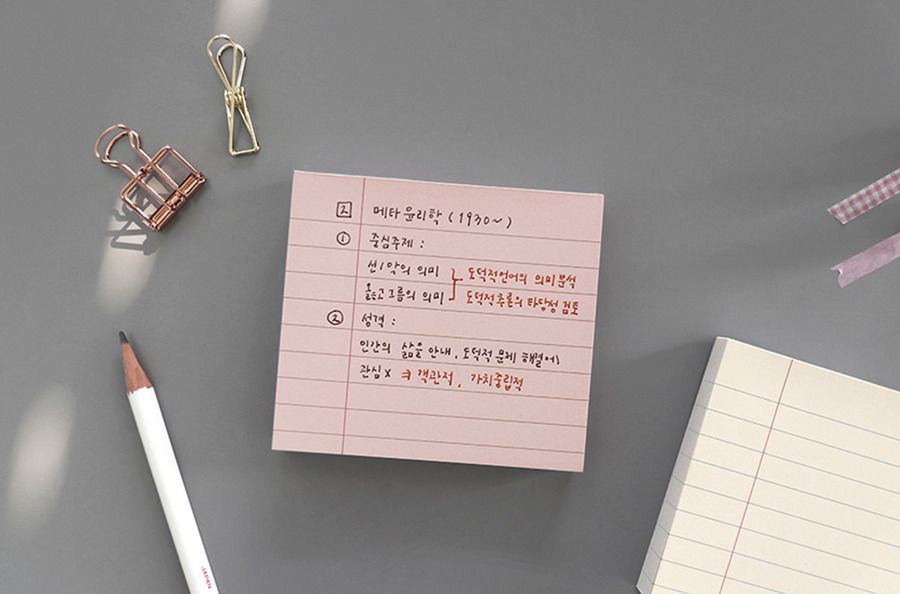 2 메타 윤리학 (1930~)
① 중심주제 :
선/악의 의미 } 도덕적언어의 의미분석
옳고 그름의 의미 } 도덕적추론의 타당성 검토
② 성격 :
인간의 삶을 안내, 도덕적 문제 해결에
관심 x ⇒ 객관적, 가치중립적
JAPAN